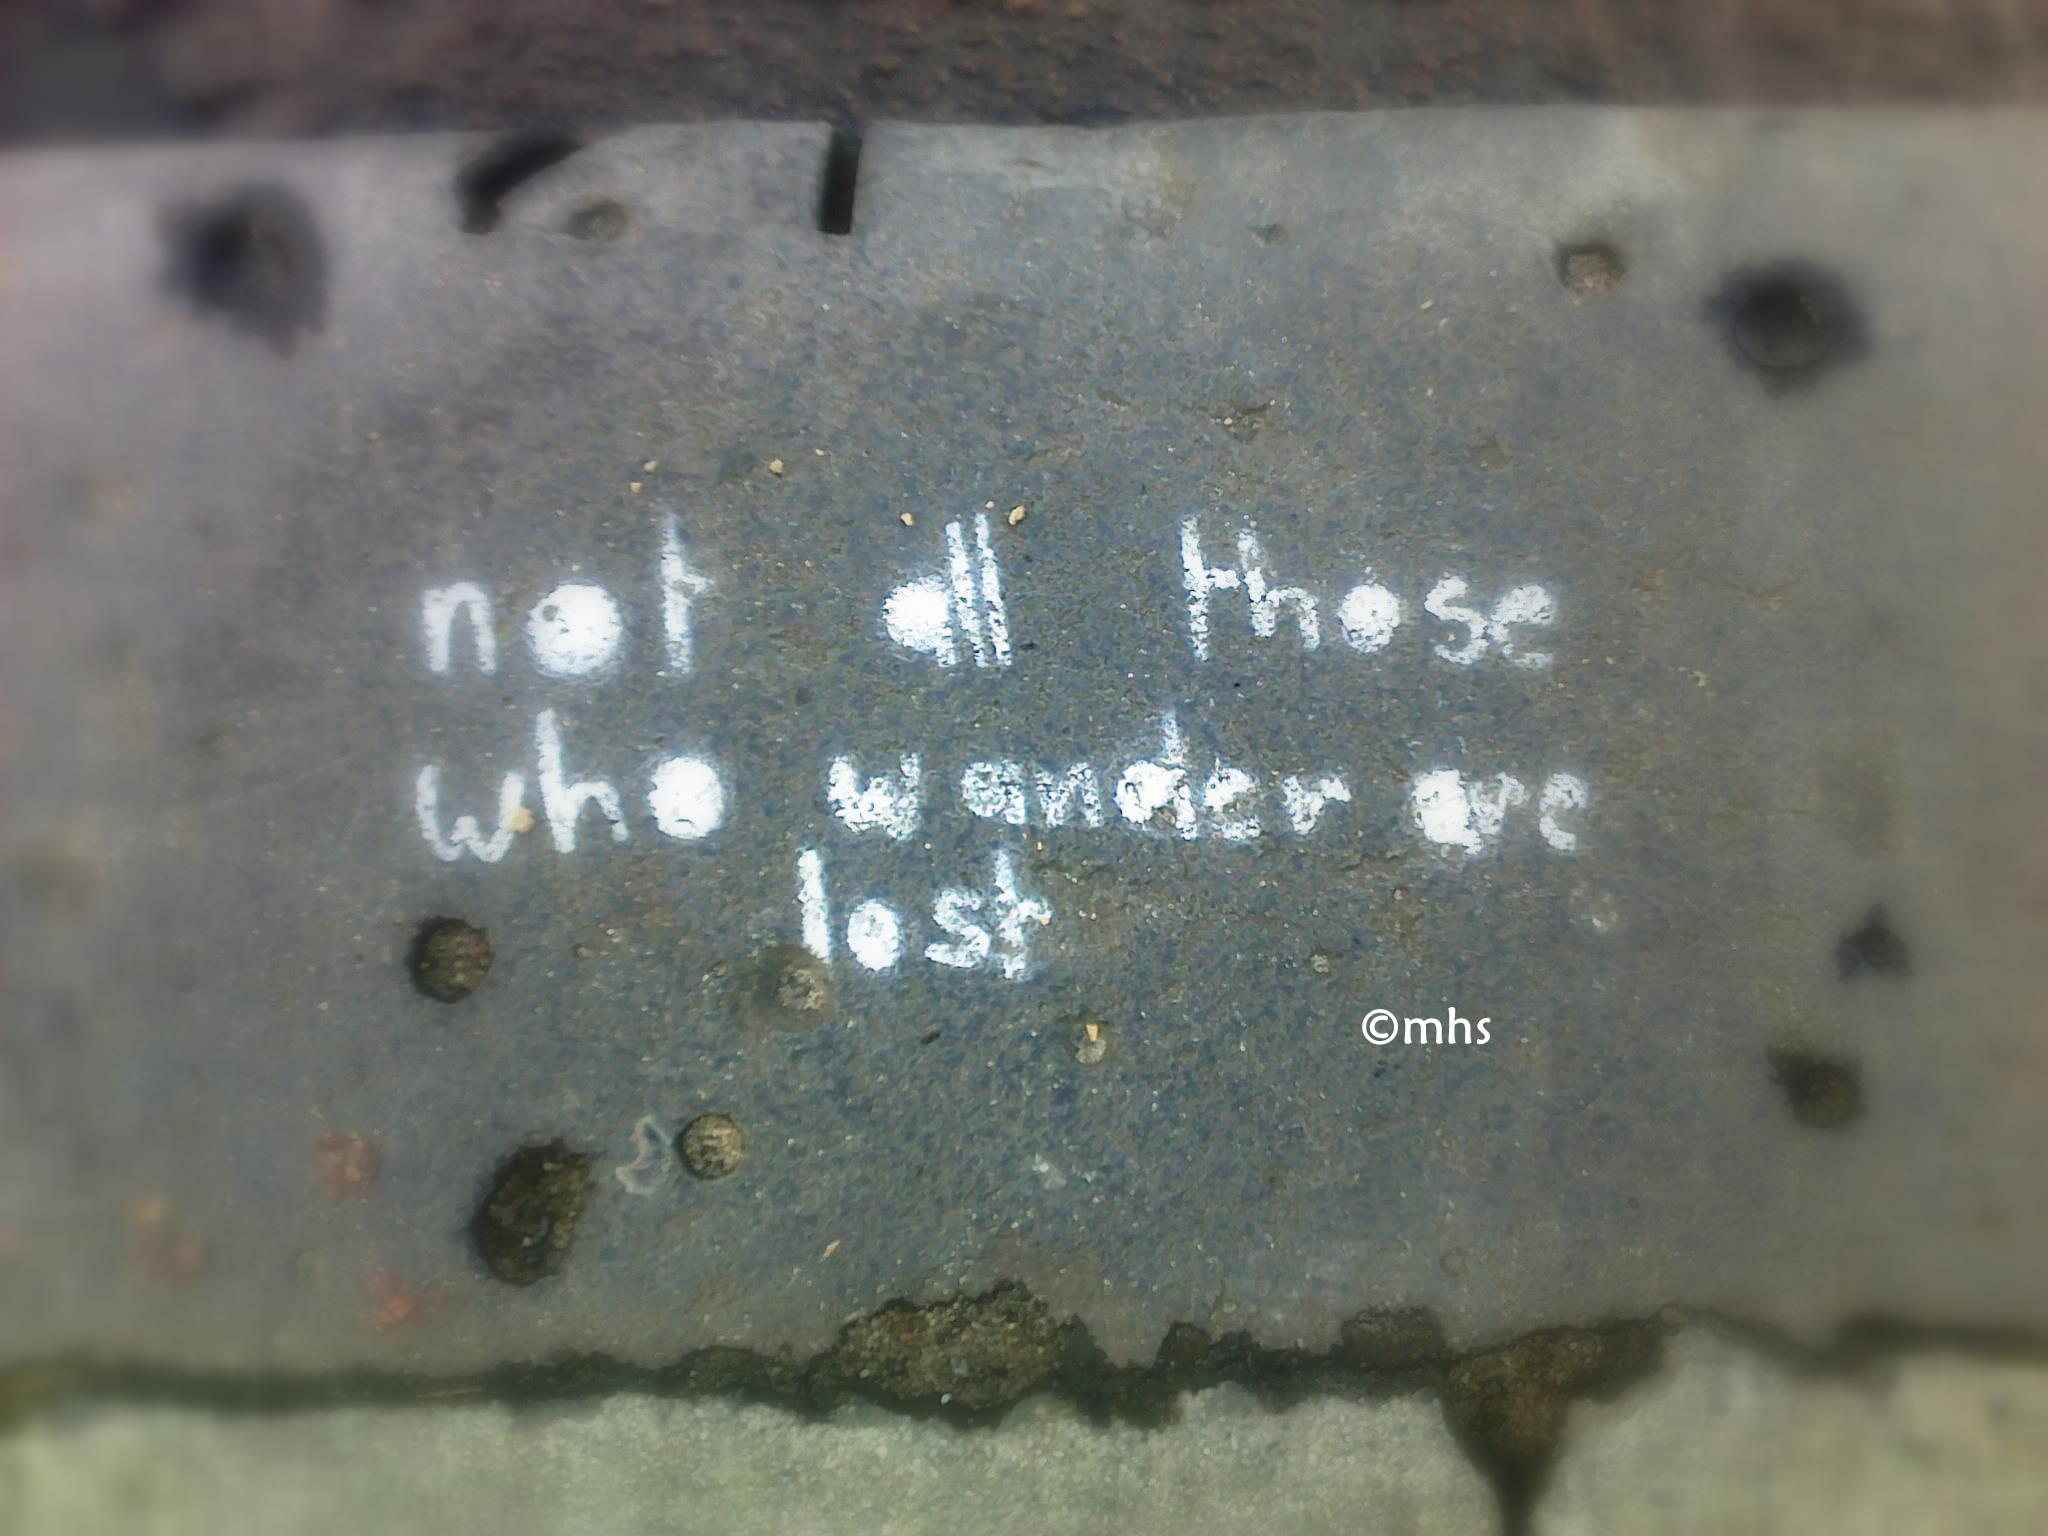 not all those
who wander are
lost
©mhs